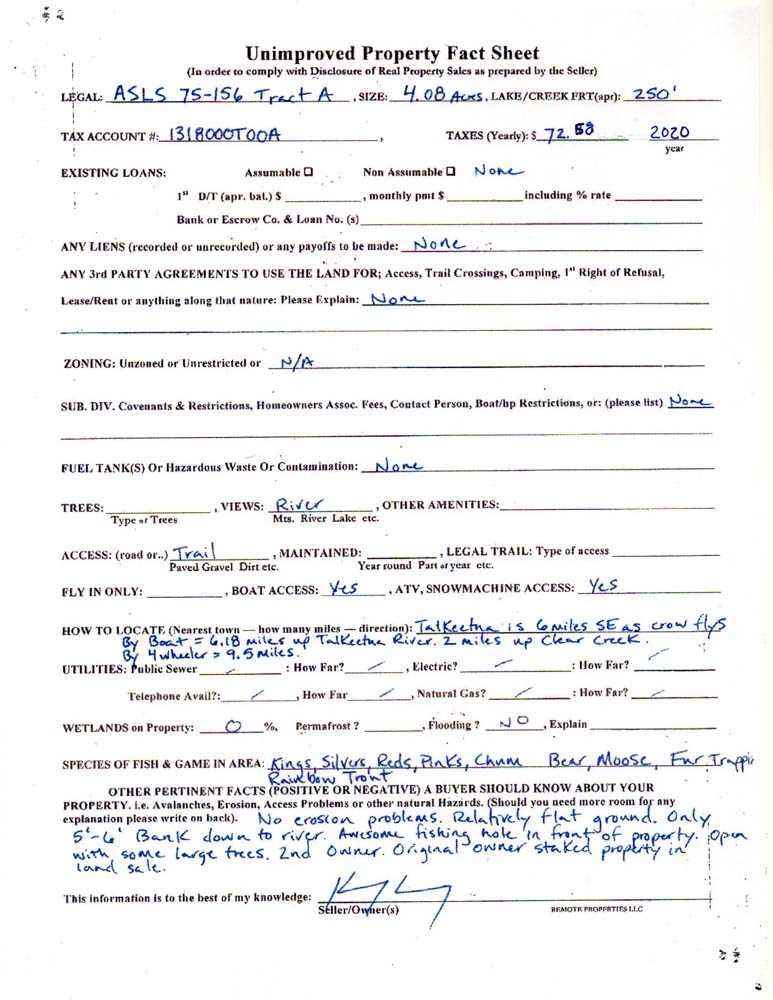 # 2
Unimproved Property Fact Sheet
(In order to comply with Disclosure of Real Property Sales as prepared by the Seller)
LEGAL: ASLS 75-156 Tract A, SIZE: 4.08 Acres, LAKE/CREEK FRT(apr): 250'
TAX ACCOUNT #: 1318000T00A, TAXES (Yearly): $ 72.58 2020
year
EXISTING LOANS: Assumable ☐ Non Assumable ☐ None
1st D/T (apr. bal.) $ ____________, monthly pmt $ ____________ including % rate ____________
Bank or Escrow Co. & Loan No. (s)____________
ANY LIENS (recorded or unrecorded) or any payoffs to be made: None
ANY 3rd PARTY AGREEMENTS TO USE THE LAND FOR; Access, Trail Crossings, Camping, 1st Right of Refusal,
Lease/Rent or anything along that nature: Please Explain: None
ZONING: Unzoned or Unrestricted or N/A
SUB. DIV. Covenants & Restrictions, Homeowners Assoc. Fees, Contact Person, Boat/hp Restrictions, or: (please list) None
FUEL TANK(S) Or Hazardous Waste Or Contamination: None
TREES: ____________, VIEWS: River, OTHER AMENITIES: ____________
Type of Trees Mts. River Lake etc.
ACCESS: (road or..) Trail, MAINTAINED: ____________, LEGAL TRAIL: Type of access ____________
Paved Gravel Dirt etc. Year round Part of year etc.
FLY IN ONLY: ____________, BOAT ACCESS: Yes, ATV, SNOWMACHINE ACCESS: Yes
HOW TO LOCATE (Nearest town — how many miles — direction): Talkeetna is 6 miles SE as crow flys
By Boat = 6.18 miles up Talkeetna River. 2 miles up Clear Creek.
By 4wheeler = 9.5 miles.
UTILITIES: Public Sewer / : How Far? /, Electric? / : How Far? /
Telephone Avail?: /, How Far /, Natural Gas? / : How Far? /
WETLANDS on Property: 0 %, Permafrost ? ____________, Flooding ? NO, Explain ____________
SPECIES OF FISH & GAME IN AREA: Kings, Silvers, Reds, Pinks, Chum Bear, Moose, Fur Trappin
Rainbow Trout
OTHER PERTINENT FACTS (POSITIVE OR NEGATIVE) A BUYER SHOULD KNOW ABOUT YOUR
PROPERTY. i.e. Avalanches, Erosion, Access Problems or other natural Hazards. (Should you need more room for any
explanation please write on back). No eroscon problems. Relatively flat ground. Only
5'-6' Bank down to river. Awesome fishing hole in front of property. Open
with some large trees. 2nd Owner. Original owner staked property in
land sale.
This information is to the best of my knowledge:
Seller/Owner(s)
REMOTE PROPERTIES LLC